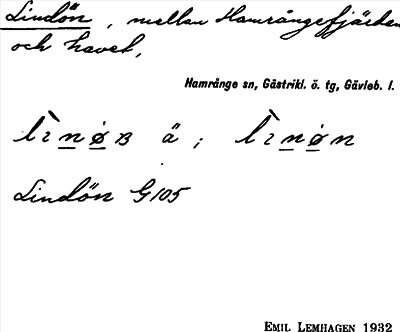 Lindön, mellan Hamrångefjärden
och havet,
Hamrånge sn, Gästrikl. ö. tg, Gävleb. l.
ä ;
Lindön G 105
EMIL LEMHAGEN 1932